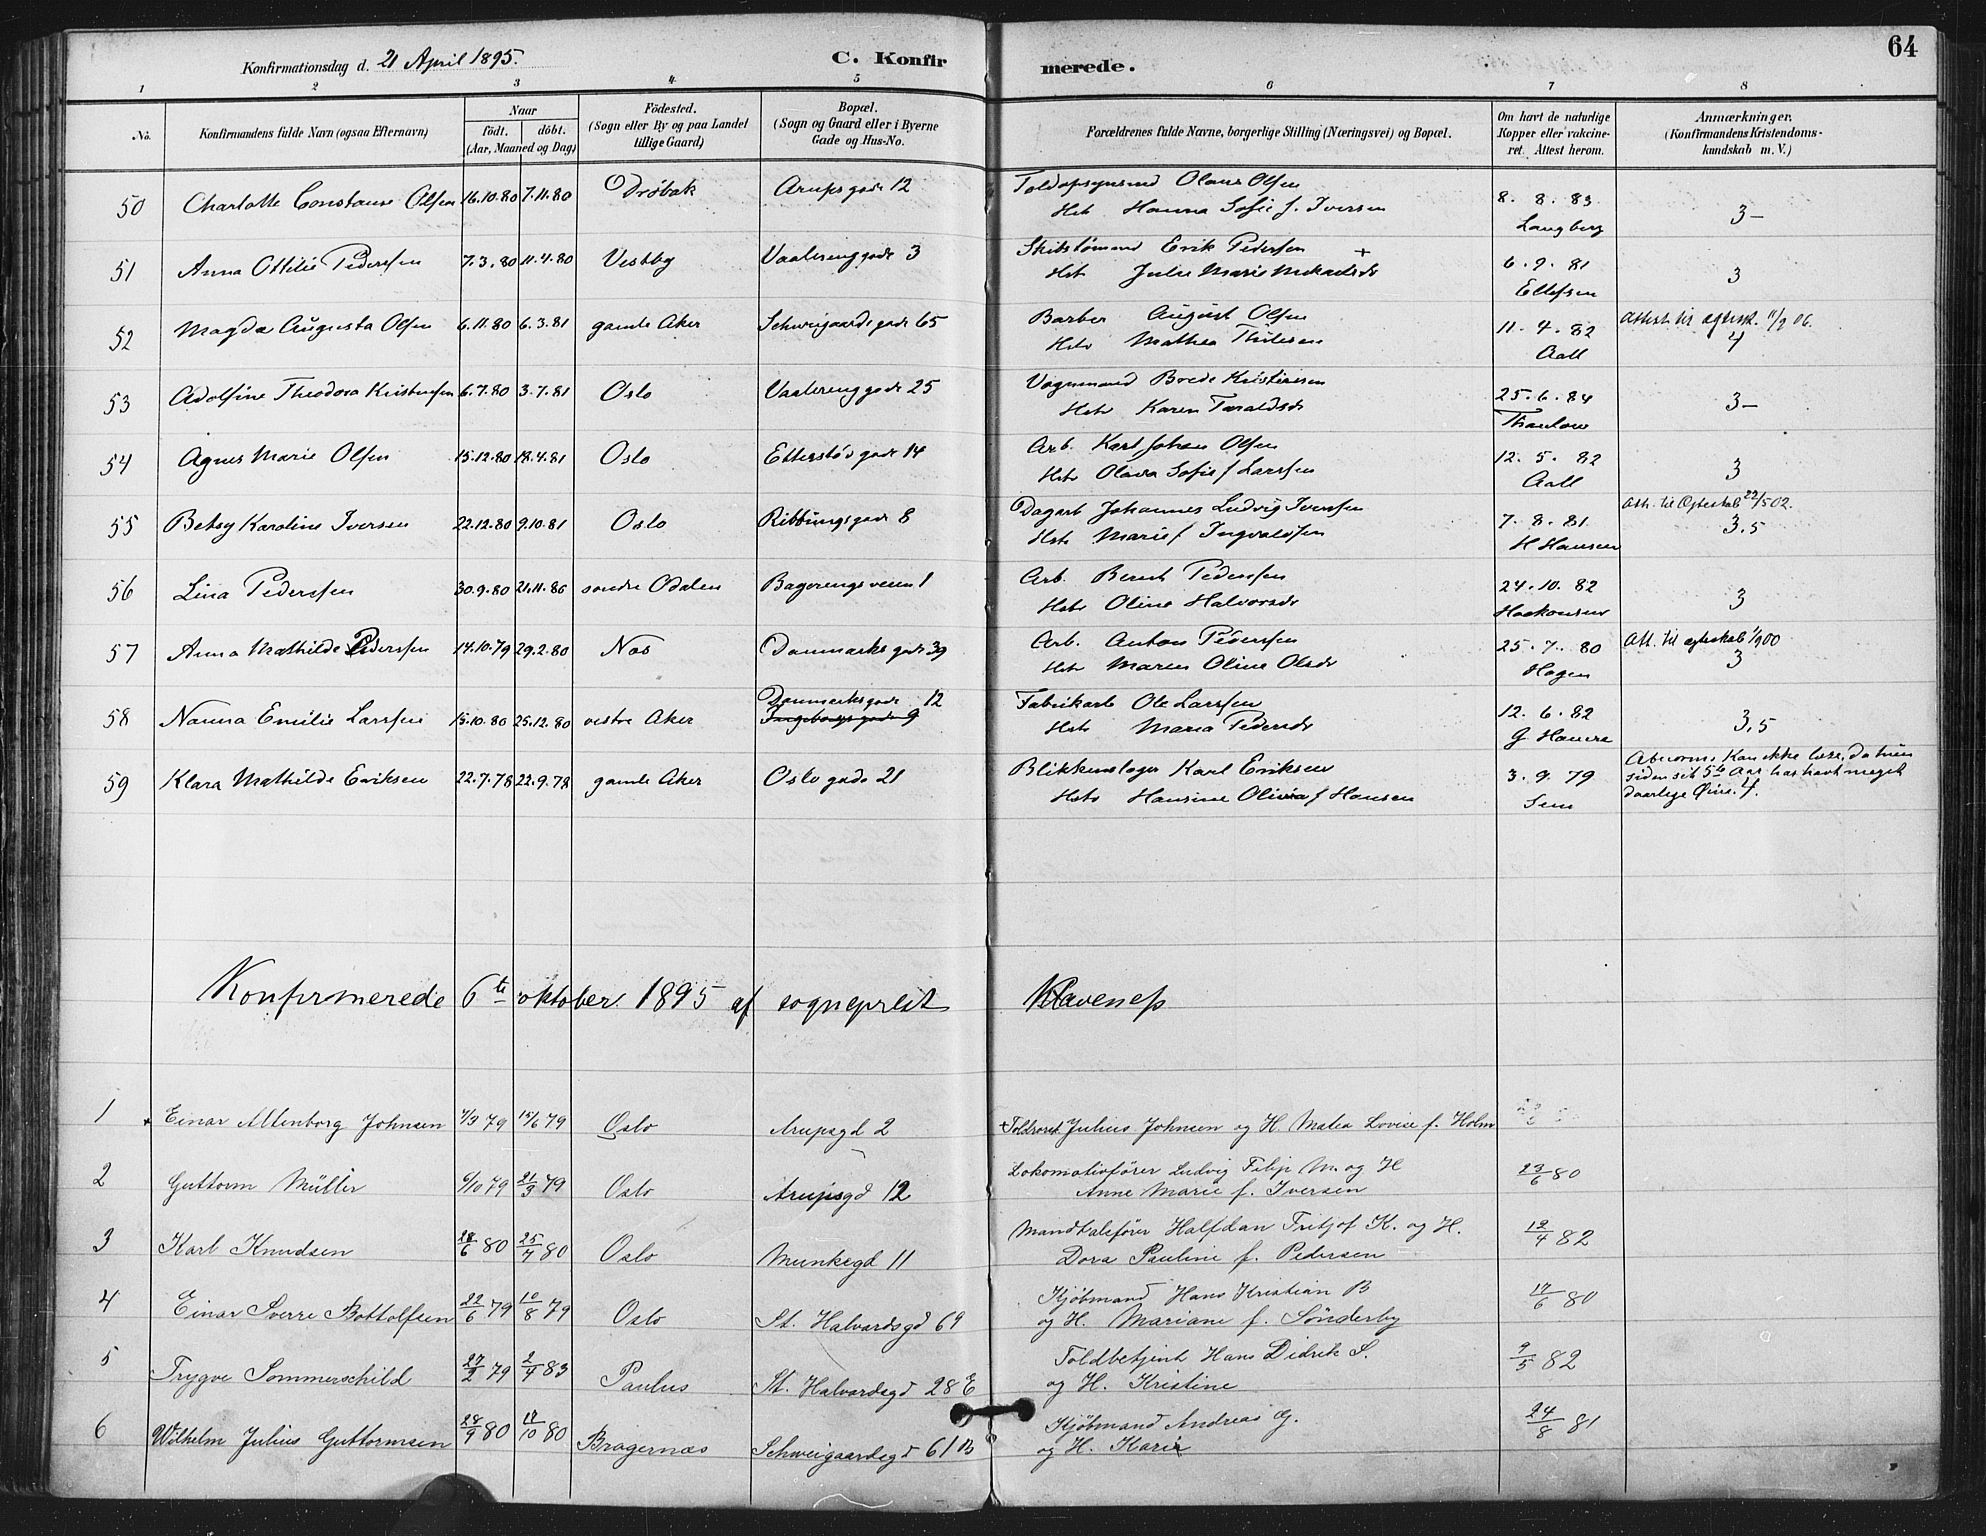 Konfirmationsdag d. 21 April 1895. C. Konfirmerede. 64
1 2 3 4 5 6 7 8
No. Konfirmandens fulde Navn (ogsaa Efternavn) Naar födt. döbt. (Aar, Maaned og Dag) Födested. (Sogn eller By og paa Landet tillige Gaard) Bopæl. (Sogn og Gaard eller i Byerne Gade og Hus-No. Forældrenes fulde Navne, borgerlige Stilling (Næringsvei) og Bopæl. Om havt de naturlige Kopper eller vakcineret. Attest herom. Anmærkninger. (Konfirmandens Kristendomskundskab m. V.)
50 Charlotte Constanse Olsen 16.10.80 7.11.80 Drøbak Arupsgade 12 Toldopsynsmd Olaus Olsen 8. 8. 83
Hst Hanna Sofie f. Iversen Langberg 3-
51 Anna Ottilie Pedersen 7.3.80 11.4.80 Vestby Vaalerenggade 3 Skibstømmd Erik Pedersen + 6.9.81
Hst Julie Marie Mikaelsdr Ellefsen 3
52 Magda Augusta Olsen 6.11.80 6.3.81 gamle Aker Schweigaardsgade 65 Barber August Olsen 11.4.82 Attest til ægtesk. 11/9 06.
Hst Mathea Thilesen Aall 4
53 Adolfine Theodora Kristensen 6.7.80 3.7.81 Oslo Vaalerenggade 25 Vognmand Brede Kristensen 25.6.84
Hst Karen Taraldsdr Thaulow 3-
54 Agnes Marie Olsen 15.12.80 18.4.81 Oslo Etterstødgade 14 Arb. Karl Johan Olsen 12. 5. 82
Hst Olava Sofie f Larssen Aall 3
55 Betsy Karoline Iversen 22.12.80 9.10.81 Oslo Ribbungsgade 8 Dagarb Johannes Ludvig Iverssen 7. 8. 81 Att. til Ægteskab 22/5 02.
Hst Marie f Ingvaldsen H Hansen 3,5
56 Lina Pederssen 30.9.80 21.11.80 søndre Odalen Bagerengveien 1 Arb. Bernt Pederssen 24.10.82
Hst Oline Halvorsdr Haakonsen 3
57 Anna Mathilde Pederssen 14.10.79 29.2.80 Nes Danmarksgade 39 Arb. Anton Pederssen 25.7.80 Att. til ægteskab 1/9 00
Hst Maren Oline Olsdr Hagen 3
58 Nanna Emilie Larssen 15.10.80 25.12.80 vestre Aker Danmarksgade 12 Fabrikarb Ole Larssen 12. 6. 82
Ingeborgsgade 9 Hst Maria Pedersdr 3,5
59 Klara Mathilde Eriksen 22.7.78 22.9.78 gamle Aker Oslogade 21 Blikkenslager Karl Eriksen 3.9.79 Kan ikke læse, da hun
Hst Hansine Olivia f Hansen Sem siden sit 5te Aar har havt meget
daarlige Øine. 4.
Konfirmerede 6te oktober 1895 af sogneprest Klaveness
1 Einar Altenborg Johnsen 7/3 79 15/6 79 Oslo Arupsgd 2 Toldroret Julius Johnsen og H. Matea Lovise f. Holm
2 Guttorm Müller 6/10 79 21/3 79 Oslo Arupsgd 12 Lokomotivfører Ludvig Filip M. og H
Anne Marie f. Iversen 23/6 80
3 Karl Knudsen 28/6 80 25/7 80 Oslo Munkegd 11 Mandtalsfører Halfdan Fritjof K. og H.
Dora Pauline f. Pedersen 13/4 82
4 Einar Sverre Bottolfsen 22/6 79 10/8 79 Oslo St. Halvardsgd 69 Kjøbmand Hans Kristian B
og H. Mariane f. Sønderby 17/6 80
5 Trygve Sommerschild 27/2 79 2/4 83 Paulus St. Halvardsgd 28 E Toldbetjent Hans Didrik S.
og H. Kristine 9/5 82
6 Wilhelm Julius Guttormsen 28/9 80 17/10 80 Bragernæs Schweigaardsgd 61 B Kjøbmand Andreas G.
og H. Karie 24/8 81